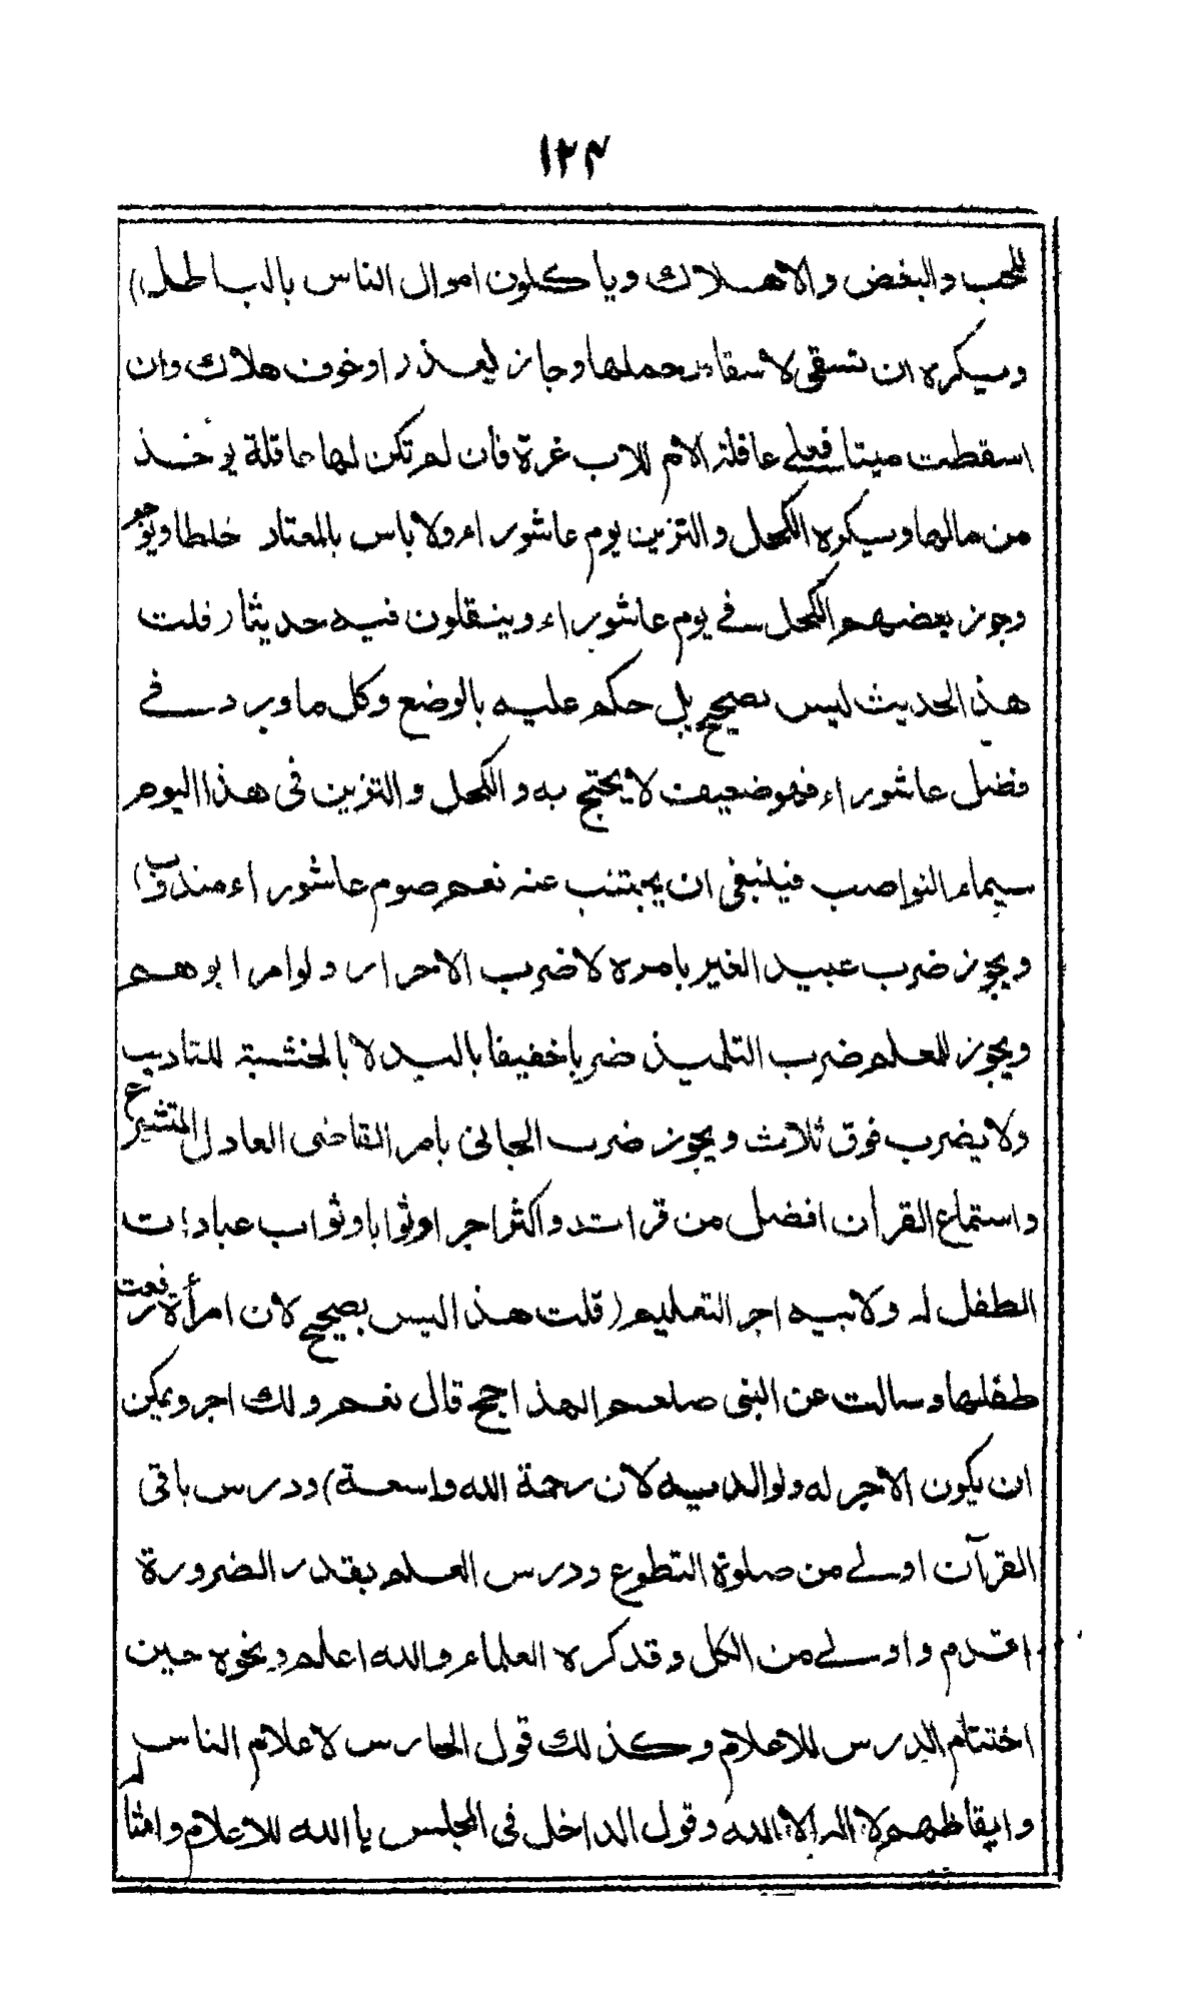 ١٢٤
للحب والبغض والاهلاك وياكلون اموال الناس بالباطل)
ويكره ان تسقى لاسقاط حملها وجاز لعذر او خوف هلاك وان
اسقطت ميتا فعلى عاقلة الام للاب غرة فان لم تكن لها عاقلة يوخذ
من مالها ويكره الكحل والتزين يوم عاشوراء ولا باس بالمعتاد خلطا ويوجر
وجوز بعضهم الكحل في يوم عاشوراء وينقلون فيه حديثا (قلت
هذا الحديث ليس بصحيح بل حكم عليه بالوضع وكل ما ورد في
فضل عاشوراء فهو ضعيف لا يحتج به والكحل والتزين فى هذا اليوم
سيماء النواصب فينبغى ان يجتنب عنه نعم صوم عاشوراء مندوب)
ويجوز ضرب عبيد الغير بامره لا ضرب الاحرار ولو امر ابوهم
ويجوز للمعلم ضرب التلميذ ضربا خفيفا باليد لا بالخشبة للتاديب
ولا يضرب فوق ثلاث ويجوز ضرب الجانى بامر القاضى العادل المتشرع
واستماع القران افضل من قراته واكثر اجرا وثوابا وثواب عبادات
الطفل له ولابيه اجر التعليم (قلت هذا ليس بصحيح لان امرأة رفعت
طفلها وسالت عن النبى صلعم الهذا حج قال نعم ولك اجر ويمكن
ان يكون الاجر له ولوالديه لان رحمة الله واسعة) ودرس باقى
القرآن اولى من صلوة التطوع ودرس العلم بقدر الضرورة
اقدم واولى من الكل وقد كره العلماء والله اعلم ونحوه حين
اختتام الدرس للاعلام وكذلك قول الحارس لاعلام الناس
وايقاظهم لا اله الا الله وقول الداخل فى المجلس يا الله للاعلام وامثالهم